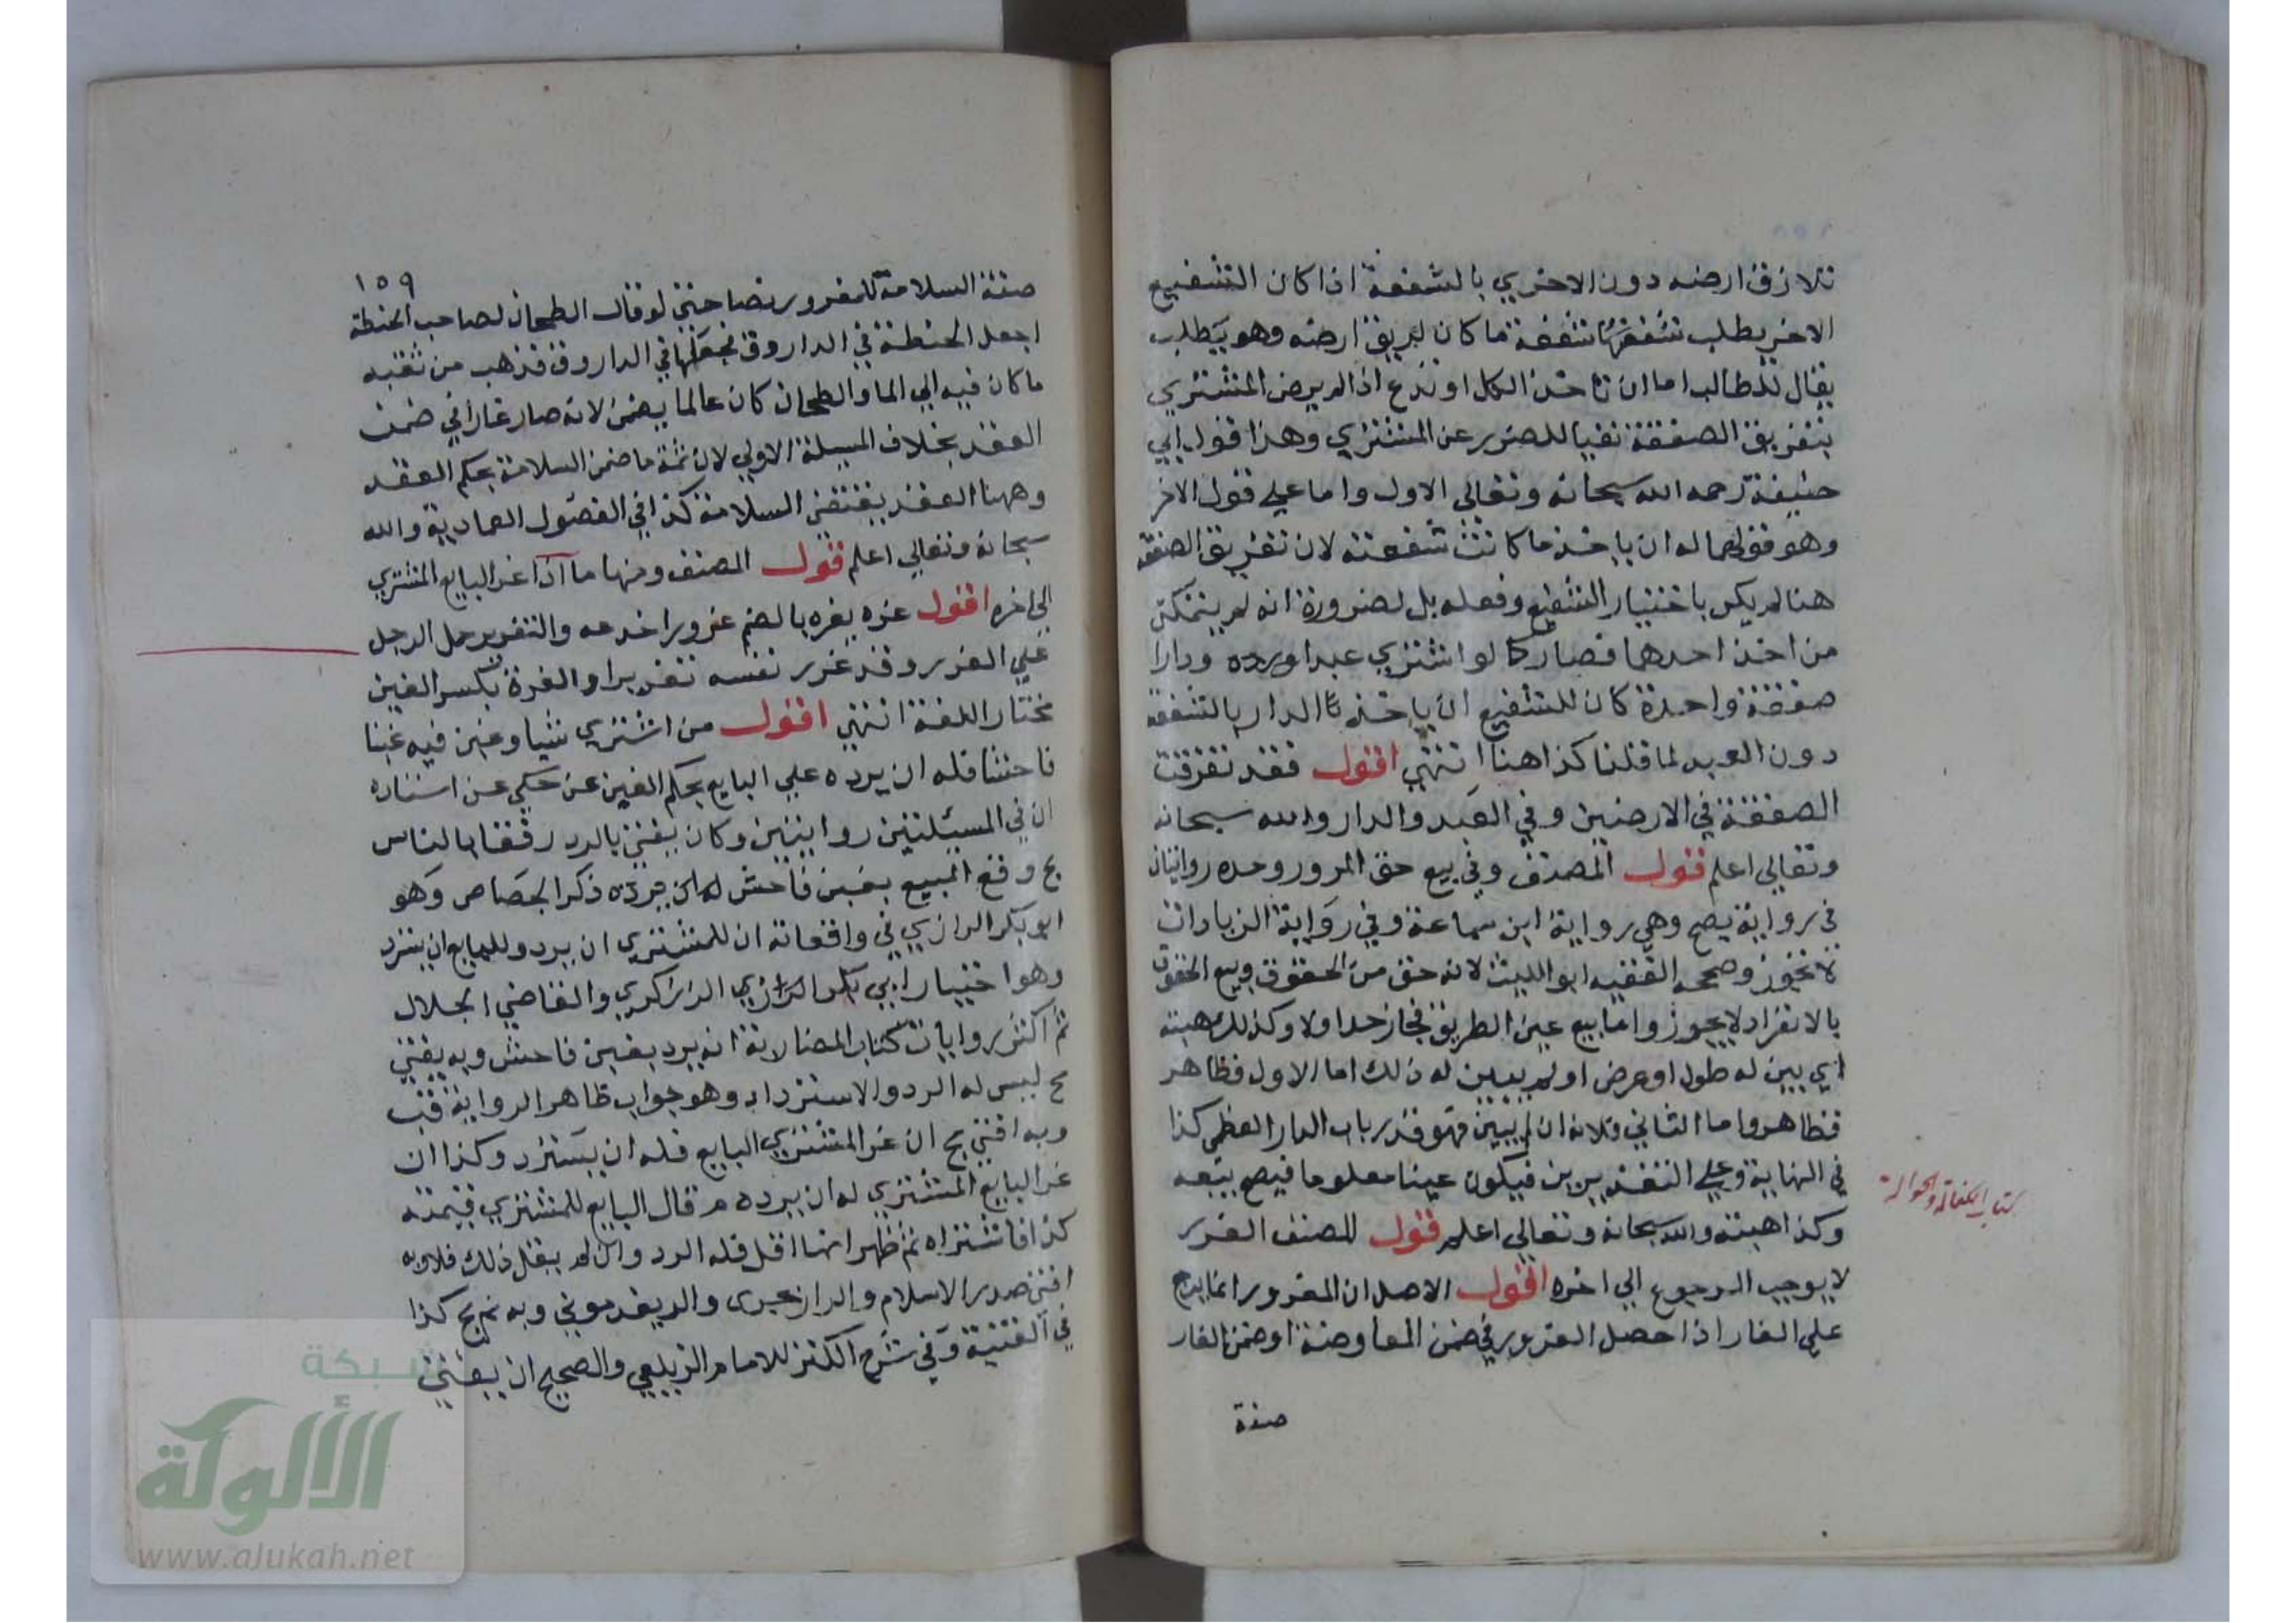 تلازق ارضه دون الاخري بالشفعة اذا كان الشفيع
الاخر يطلب شفعتها شفعة ما كان لم يلزق ارضه وهو يطلب
يقال للطالب اما ان تاخذ الكل او تدع اذا لم يرض المشتري
بتفريق الصفقة نفيا للضرر عن المشتري وهذا قول ابي
حنيفة رحمه الله سبحانه وتعالي الاول واما علي قول الاخر
وهو قولهما له ان ياخذ ما كانت شفعته لان تفريق الصفقة
هنا لم يكن باختيار الشفيع وفعله بل لضرورة انه لم يتمكن
من اخذ احدهما فصار كما لو اشتري عبدا ودارا
صفقة واحدة كان للشفيع ان ياخذ الدار بالشفعة
دون العبد لما قلنا كذا هنا انتهي اقول فقد تفرقت
الصفقة في الارضين وفي العبد والدار والله سبحانه
وتعالي اعلم قول المصنف وفي بيع حق المرور وحده روايتان
في رواية يصح وهي رواية ابن سماعة وفي رواية الزيادات
لا تجوز وصححه الفقيه ابو الليث لانه حق من الحقوق وبيع الحقوق
بالانفراد لا يجوز واما بيع عين الطريق فجاز حد اولا وكذلك هبته
اي بين له طول او عرض او لم يبين له ذلك اما الاول فظاهر
فظاهر واما الثاني فلانه ان لم يبين فهو قدر باب الدار العظمي كذا
في النهاية وعلي التقديرين فيكون عينا معلوما فيصح بيعه
وكذا هبته والله سبحانه وتعالي اعلم قول المصنف الغرر
لا يوجب الرجوع الي اخره اقول الاصل ان المغرور انما يرجع
علي الغار اذا حصل الغرور في ضمن المعاوضة او ضمن الغار
صفة
كتاب الكفالة والحوالة
١٥٩
صفة السلامة للمغرور نصا حتي لو قال الطحان لصاحب الحنطة
اجعل الحنطة في الداروق فجعلها في الداروق فذهب من ثقبه
ما كان فيه الي الما والطحان كان عالما يضمن لانه صار غارا في ضمن
العقد بخلاف المسيلة الاولي لان ثمة ما ضمن السلامة بحكم العقد
وههنا العقد يقتضي السلامة كذا في الفصول العمادية والله
سبحانه وتعالي اعلم قول المصنف ومنها ما اذا غر البايع المشتري
الي اخره اقول غره يغره بالضم غرورا خدعه والتغرير حمل الرجل
علي الغرر وقد غرر نفسه تغريرا والغرة بكسر الغين
مختار اللغة انتهي اقول من اشتري شيا وغبن فيه غبنا
فاحشا فله ان يرده علي البايع بحكم الغبن عن حكي عن استاذه
ان في المسئلتين روايتين وكان يفتي بالرد رفقا بالناس
بح وقع البيع بغبن فاحش ذكر الجصاص وهو
ابو بكر الرازي في واقعاته ان للمشتري ان يرد وللبايع ان يسترد
وهو اختيار ابي بكر الزرنكري والقاضي الجلال
ثم اكثر روايات كتاب المضاربة انه يرد بغبن فاحش وبه يفتي
بح ليس له الرد والاسترداد وهو جواب ظاهر الرواية قب
وبه افتي بح ان غر المشتري البايع فله ان يسترد وكذا ان
غر البايع المشتري له ان يرده م قال البايع للمشتري قيمته
كذا فاشتراه ثم ظهر انها اقل فله الرد وان لم يقل ذلك فلا وبه
افتي صدر الاسلام والريغدموني وبه ثم بح كذا
في القنية وفي شرح الكنز للامام الزيلعي والصحيح ان يفتي
شبكة
الألوكة
www.alukah.net